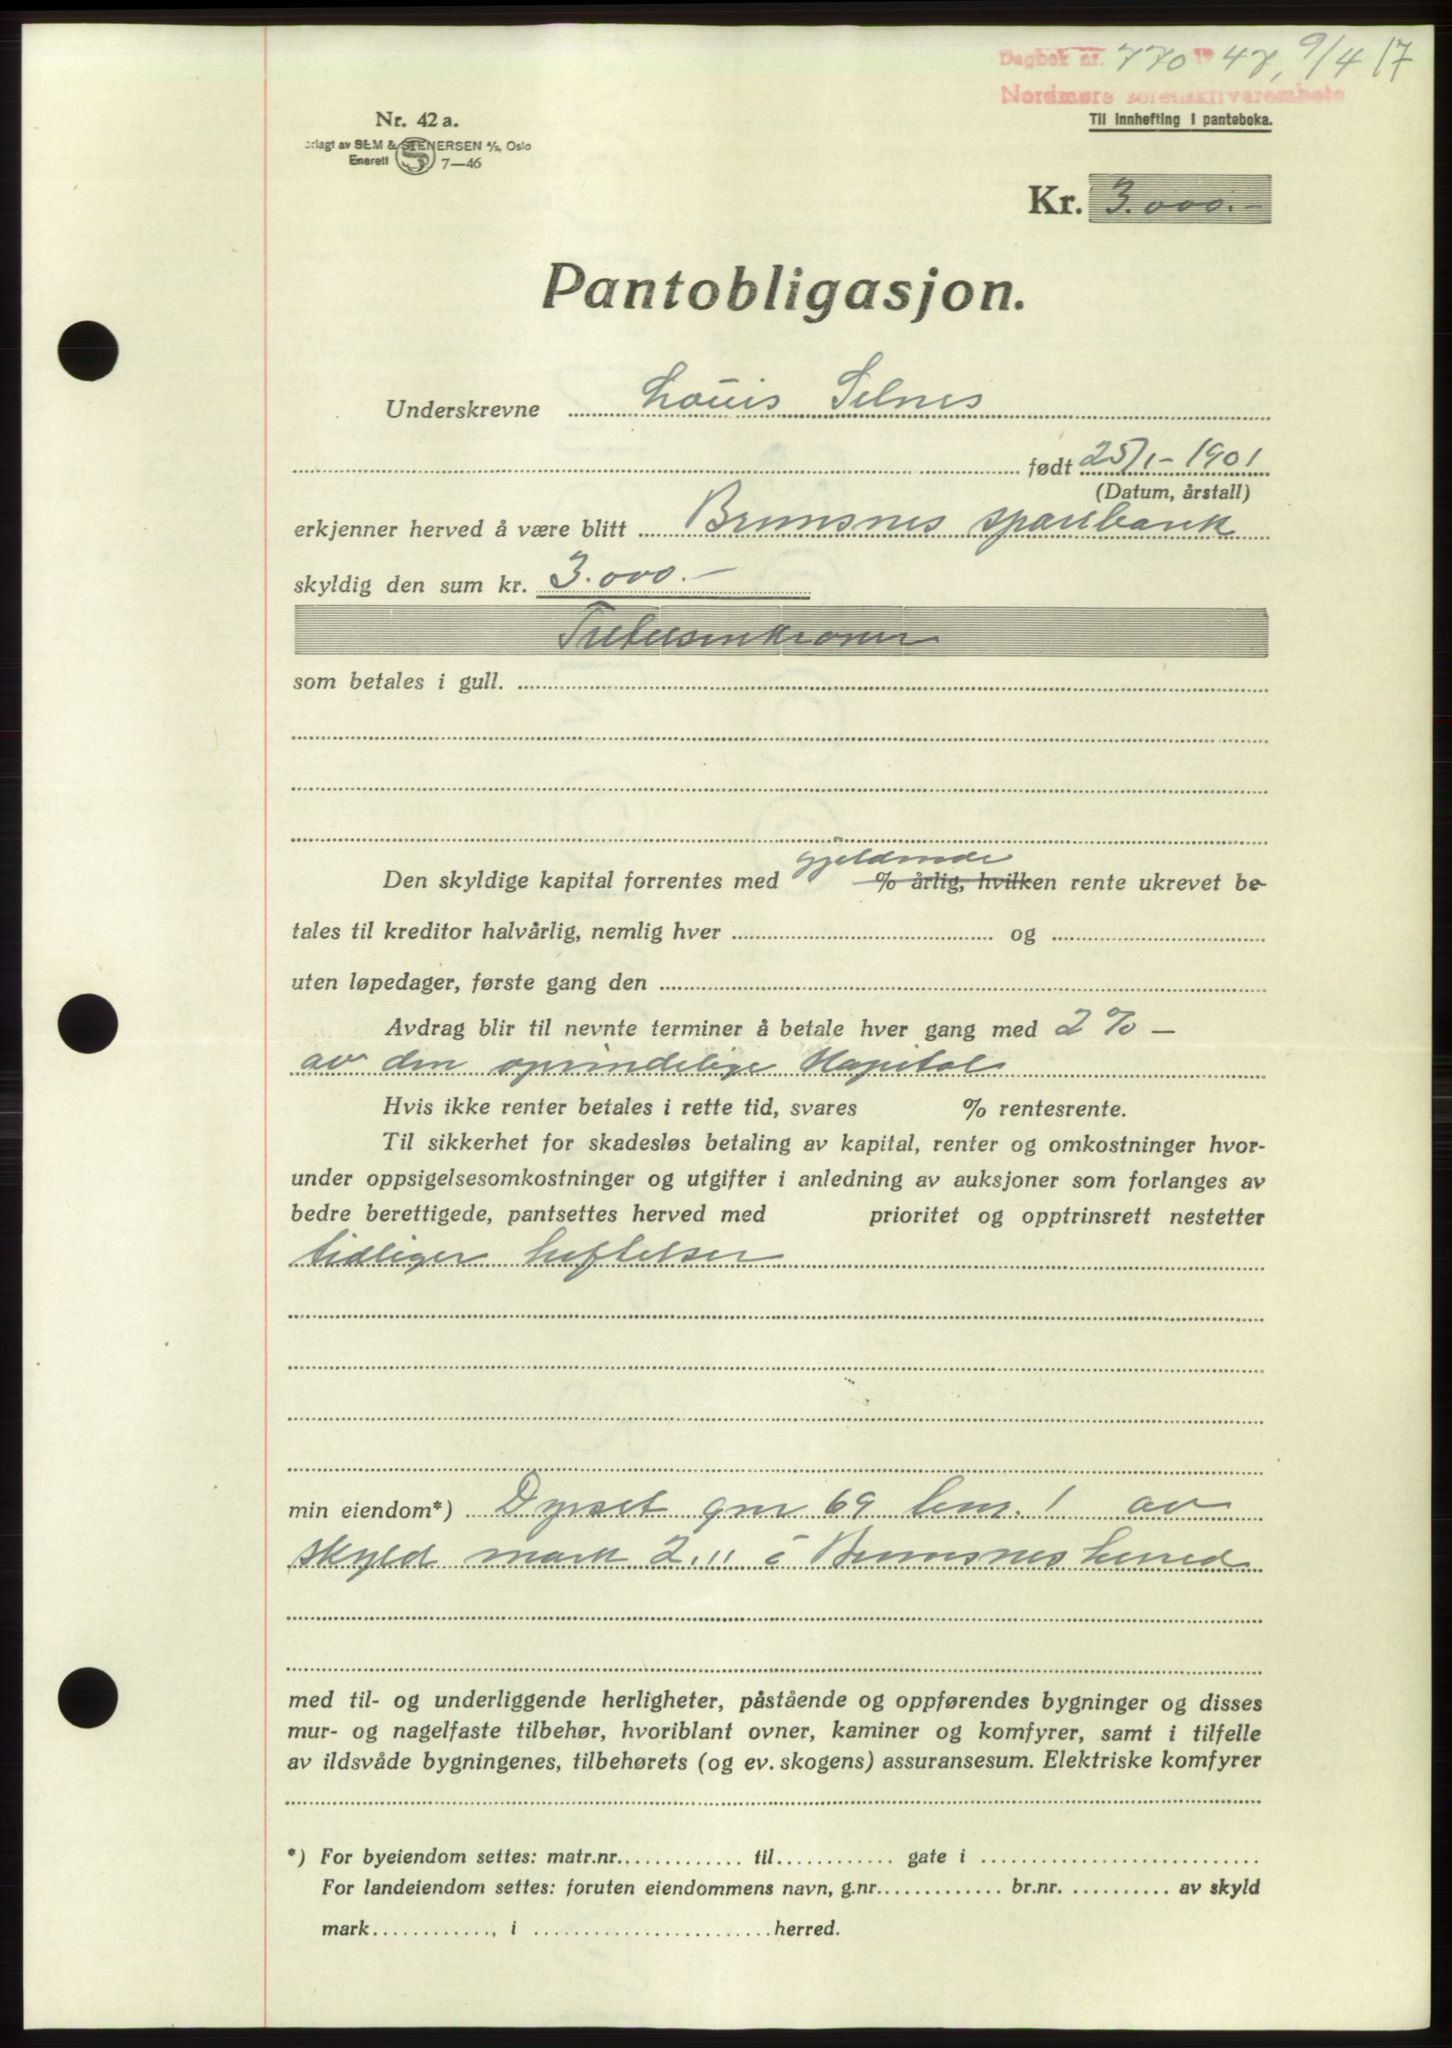 Dagbok nr. 770 19 47, 9/4 17
Nordmøre sorenskriverembete
Til innhefting i panteboka.
Nr. 42 a.
orlagt av SEM & STENERSEN A/S, Oslo
Enerett 7—46
Kr. 3.000.-
Pantobligasjon.
Underskrevne Louis Selnes
født 25/1-1901
(Datum, årstall)
erkjenner herved å være blitt Bremsnes sparebank
skyldig den sum kr. 3.000.-
Tretusenkroner
som betales i gull.
gjeldende
Den skyldige kapital forrentes med % årlig, hvilken rente ukrevet be-
tales til kreditor halvårlig, nemlig hver og
uten løpedager, første gang den
Avdrag blir til nevnte terminer å betale hver gang med 2% —
av den oprindelige Kapital
Hvis ikke renter betales i rette tid, svares % rentesrente.
Til sikkerhet for skadesløs betaling av kapital, renter og omkostninger hvor-
under oppsigelsesomkostninger og utgifter i anledning av auksjoner som forlanges av
bedre berettigede, pantsettes herved med prioritet og opptrinsrett nestetter
tidliger heftelser
min eiendom*) Dyrset gnr 69 bnr. 1 av
skyld mark 2.11 i Bremsnes herred
med til- og underliggende herligheter, påstående og oppførendes bygninger og disses
mur- og nagelfaste tilbehør, hvoriblant ovner, kaminer og komfyrer, samt i tilfelle
av ildsvåde bygningenes, tilbehørets (og ev. skogens) assuransesum. Elektriske komfyrer
*) For byeiendom settes: matr.nr. til gate i
For landeiendom settes: foruten eiendommens navn, g.nr. br.nr. av skyld
mark , i herred.